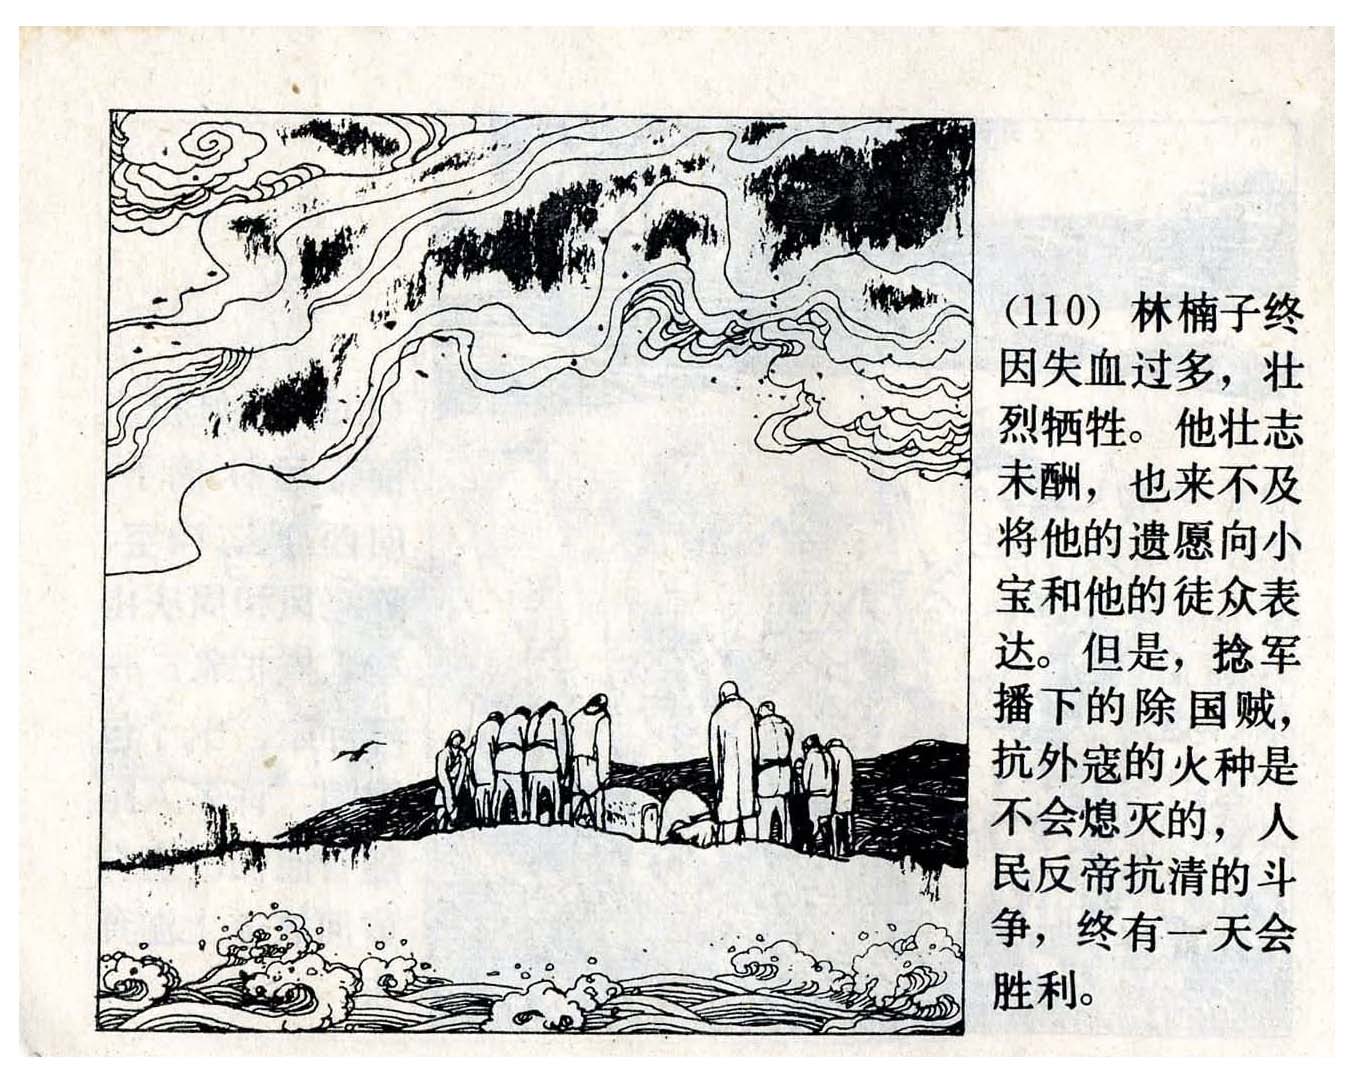 (110) 林楠子终
因失血过多，壮
烈牺牲。他壮志
未酬，也来不及
将他的遗愿向小
宝和他的徒众表
达。但是，捻军
播下的除国贼，
抗外寇的火种是
不会熄灭的，人
民反帝抗清的斗
争，终有一天会
胜利。